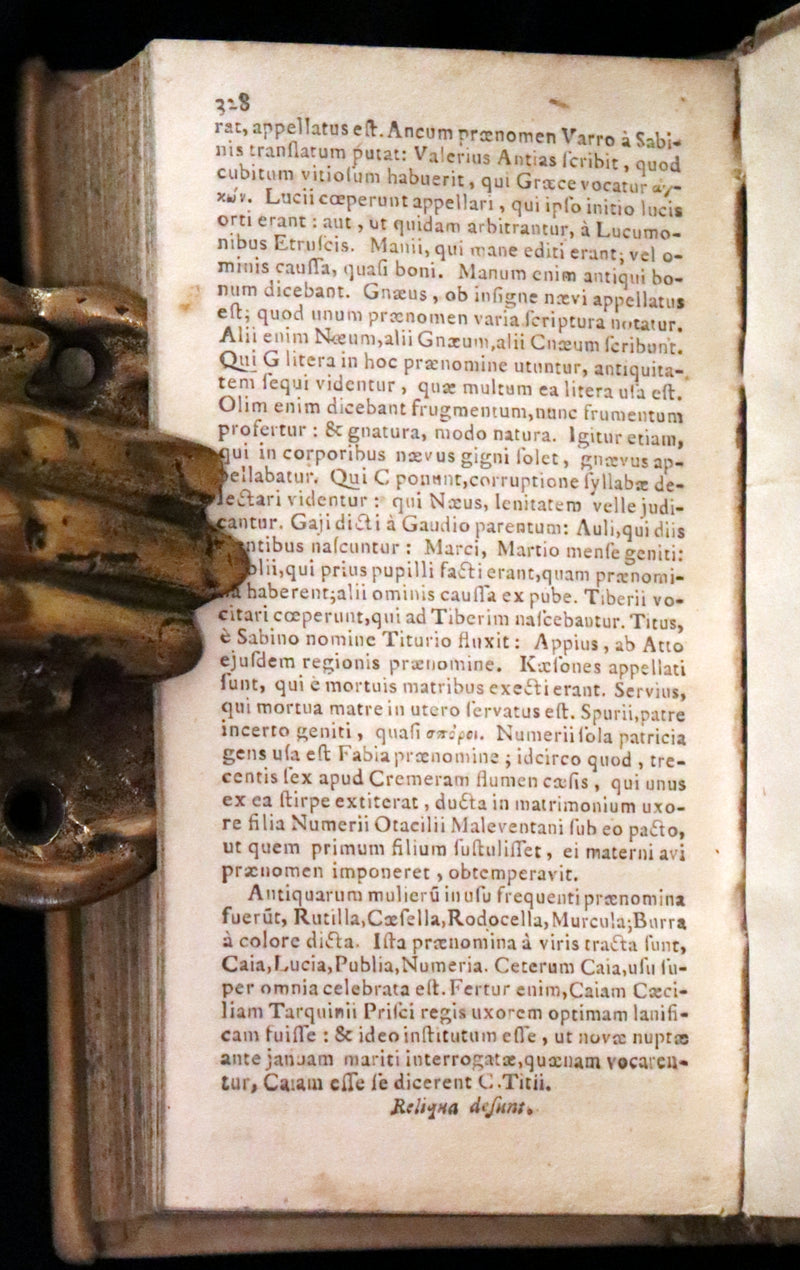 328
rat, appellatus eſt. Ancum prænomen Varro à Sabi-
nis tranſlatum putat: Valerius Antias ſcribit, quod
cubitum vitioſum habuerit, qui Græce vocatur ἀγ-
κών. Lucii cœperunt appellari, qui ipſo initio lucis
orti erant: aut, ut quidam arbitrantur, à Lucumo-
nibus Etruſcis. Manii, qui mane editi erant; vel o-
minis cauſſa, quaſi boni. Manum enim antiqui bo-
num dicebant. Gnæus, ob inſigne nævi appellatus
eſt; quod unum prænomen varia ſcriptura notatur.
Alii enim Næum, alii Gnæum, alii Cnæum ſcribunt.
Qui G litera in hoc prænomine utuntur, antiquita-
tem ſequi videntur, quæ multum ea litera uſa eſt.
Olim enim dicebant frugmentum, nunc frumentum
profertur: & gnatura, modo natura. Igitur etiam,
qui in corporibus nævus gigni ſolet, gnævus ap-
pellabatur. Qui C ponunt, corruptione ſyllabæ de-
lectari videntur: qui Næus, lenitatem velle judi-
cantur. Gaji dicti à Gaudio parentum: Auli, qui diis
ntibus naſcuntur: Marci, Martio menſe geniti:
blii, qui prius pupilli facti erant, quam prænomi-
na haberent; alii ominis cauſſa ex pube. Tiberii vo-
citari cœperunt, qui ad Tiberim naſcebantur. Titus,
è Sabino nomine Titurio fluxit: Appius, ab Atto
ejuſdem regionis prænomine. Kæſones appellati
ſunt, qui è mortuis matribus execti erant. Servius,
qui mortua matre in utero ſervatus eſt. Spurii, patre
incerto geniti, quaſi σπόροι. Numerii ſola patricia
gens uſa eſt Fabia prænomine; idcirco quod, tre-
centis ſex apud Cremeram flumen cæſis, qui unus
ex ea ſtirpe extiterat, ducta in matrimonium uxo-
re filia Numerii Otacilii Maleventani ſub eo pacto,
ut quem primum filium ſuſtuliſſet, ei materni avi
prænomen imponeret, obtemperavit.
Antiquarum mulierũ in uſu frequenti prænomina
fuerũt, Rutilla, Cæſella, Rodocella, Murcula; Burra
à colore dicta. Iſta prænomina à viris tracta ſunt,
Caia, Lucia, Publia, Numeria. Ceterum Caia, uſu ſu-
per omnia celebrata eſt. Fertur enim, Caiam Cæci-
liam Tarquinii Priſci regis uxorem optimam lanifi-
cam fuiſſe: & ideo inſtitutum eſſe, ut novæ nuptæ
ante januam mariti interrogatæ, quænam vocaren-
tur, Caiam eſſe ſe dicerent C. Titii.
Reliqua deſunt.